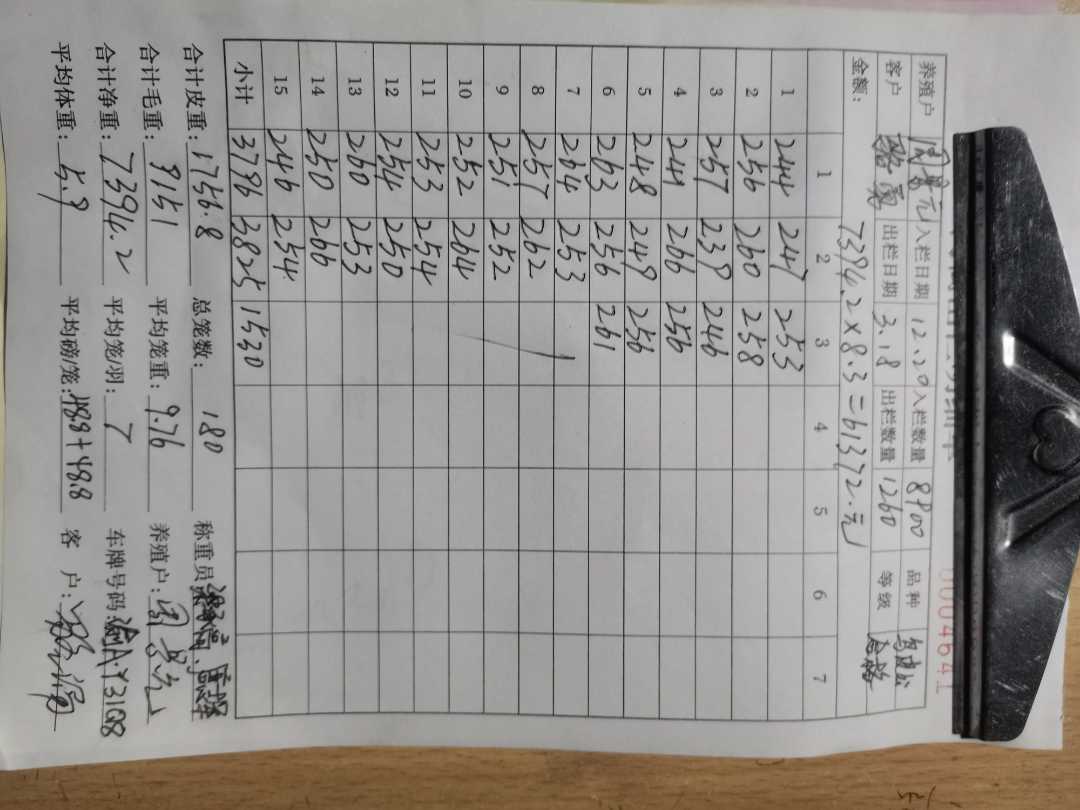 养殖户 周昌元 入栏日期 12.20 入栏数量 8900 品种
客户 出栏日期 3.18 出栏数量 1260 等级
金额: 7394.2×8.3=61372.元
1 2 3 4 5 6 7
1 244 247 253
2 256 260 258
3 257 239 246
4 241 266 256
5 248 249 256
6 263 256 261
7 264 253
8 257 262
9 251 252
10 252 264
11 253 254
12 254 250
13 260 253
14 250 266
15 246 254
小计 3796 3825 1530
合计皮重: 1756.8 总笼数: 180 称重员
合计毛重: 9151 平均笼重: 9.76 养殖户: 周昌元
合计净重: 7394.2 平均笼羽: 7 车牌号码: 渝A·Y31Q8
平均体重: 5.9 平均磅/笼: 48.8+48.8 客户:
0004641